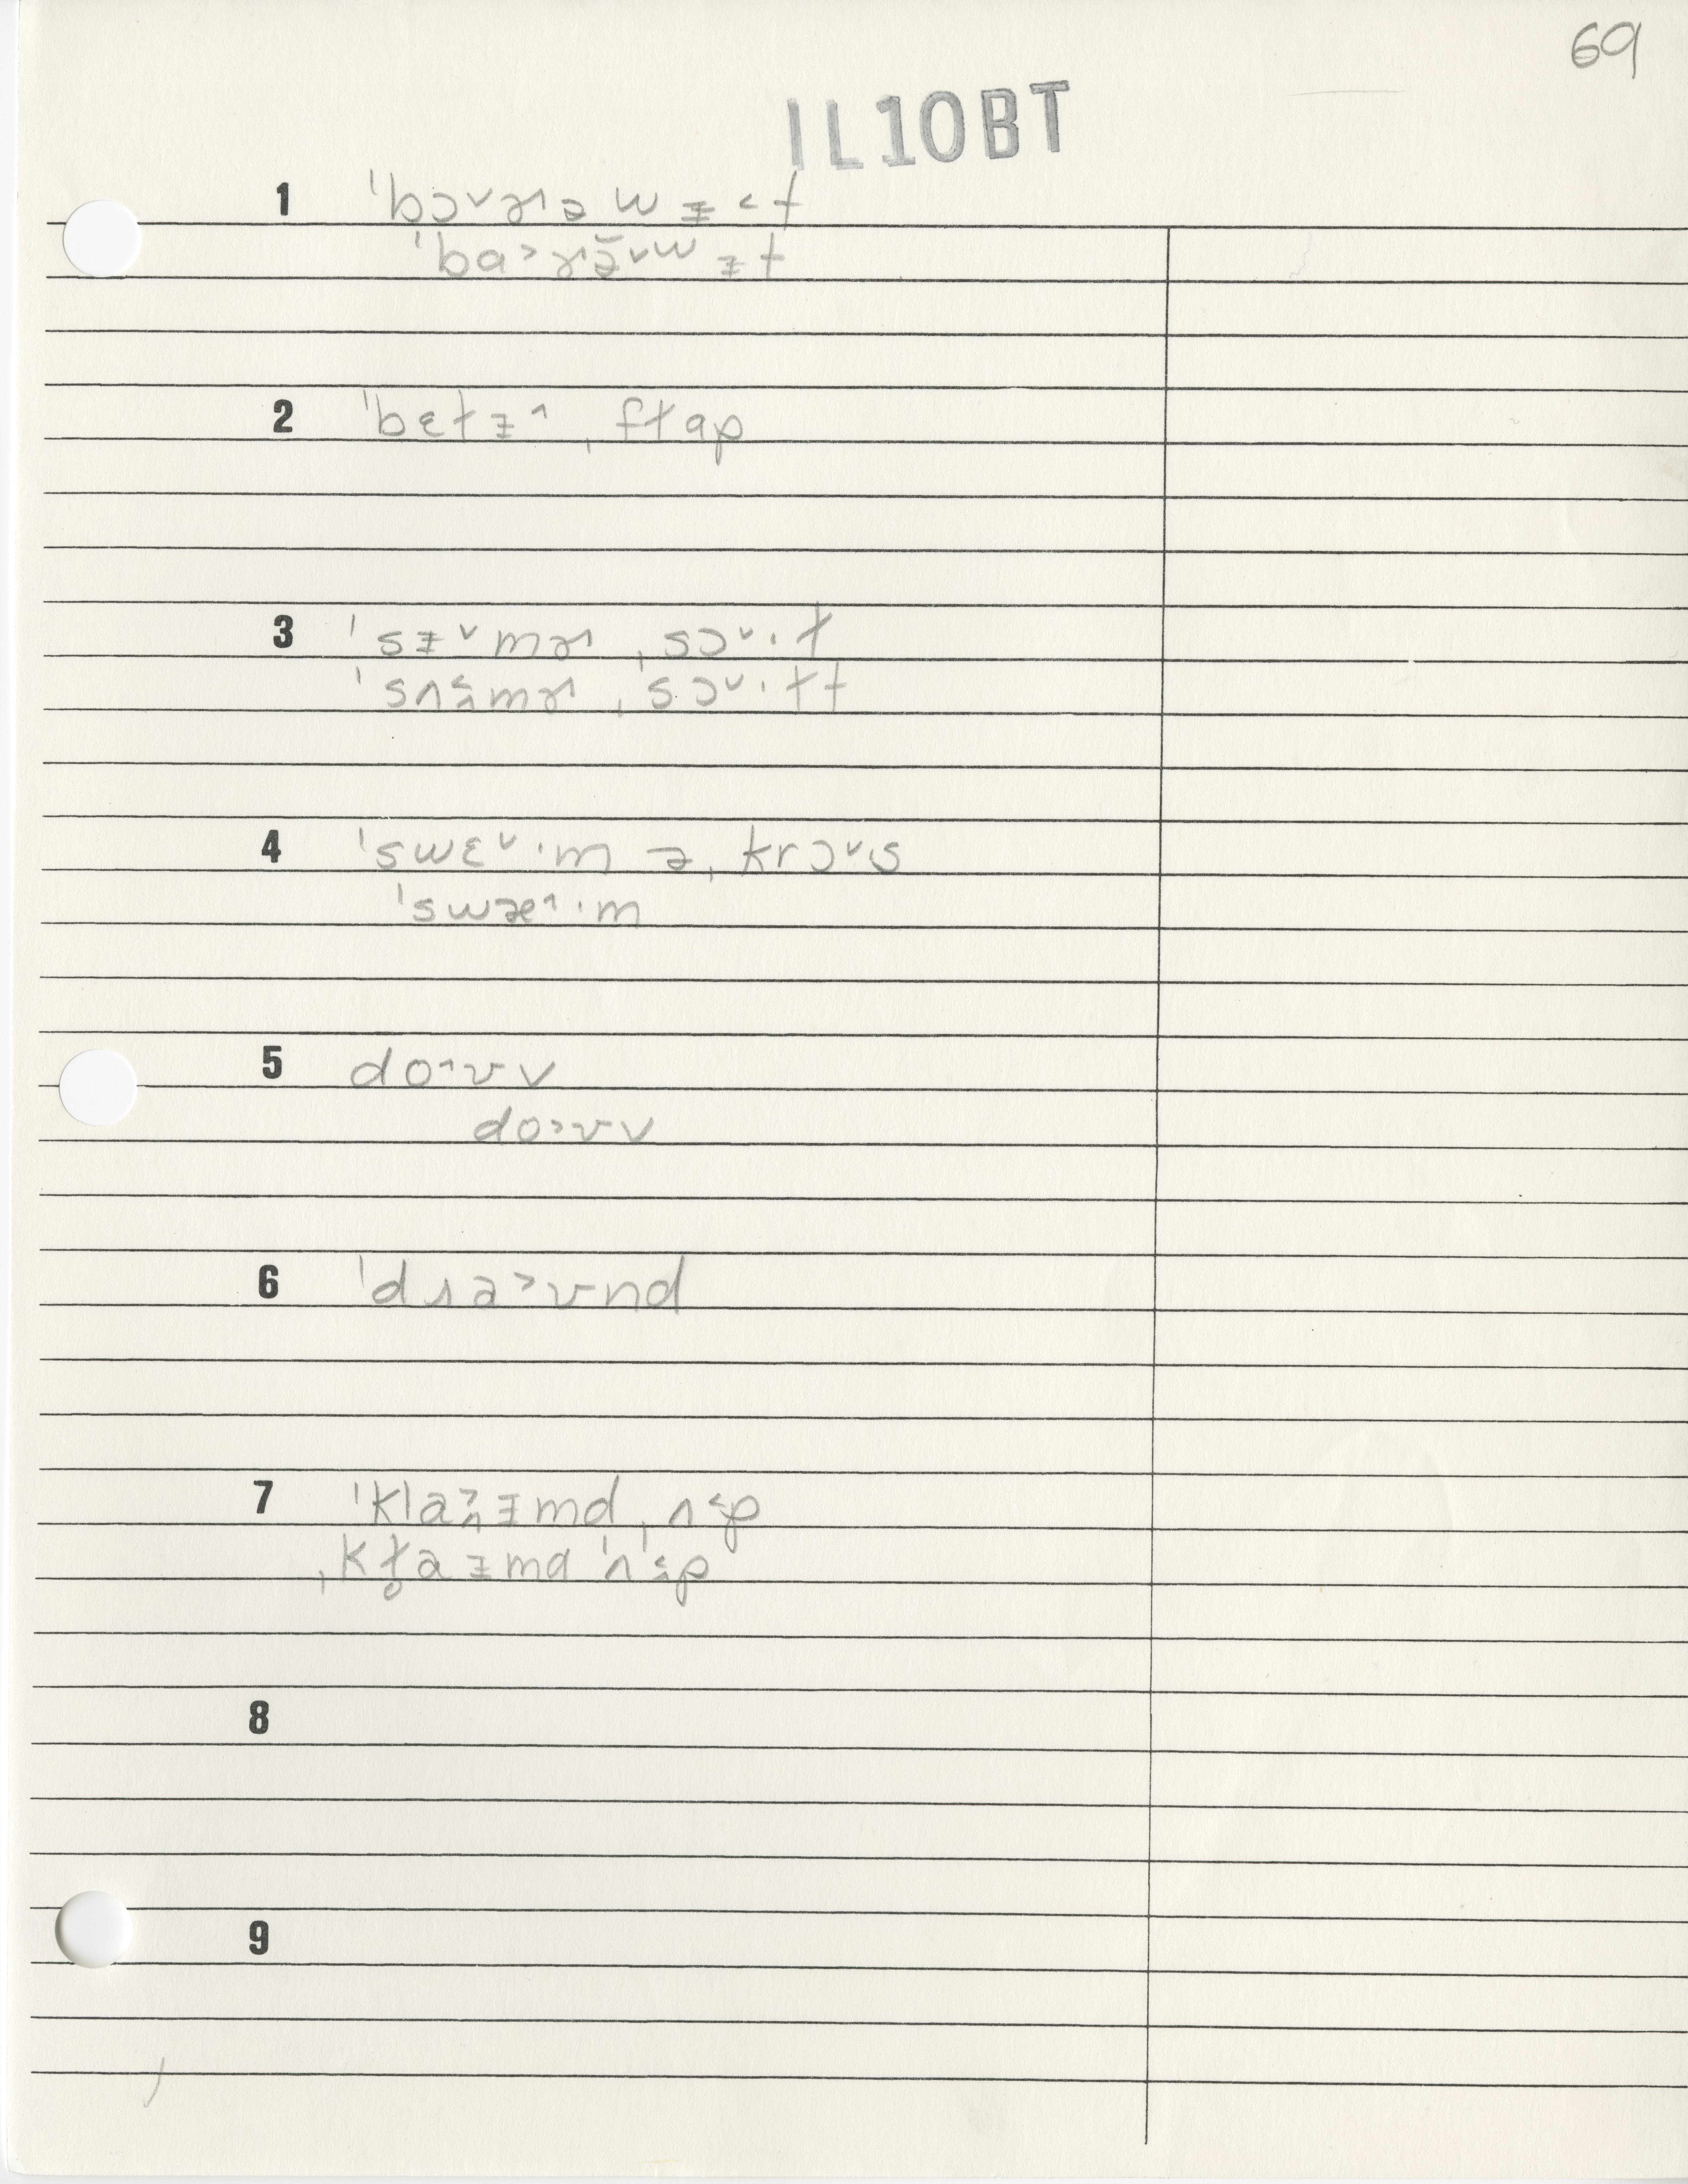 69
IL10BT
1 ˈbɔ˅ɚə w ɨ ˂ t
ˈba˃ɚə̆˅w ɨ t
2 ˈbɛɫɨ˄ ˌfɫap
3 ˈsɨ˅mɚ ˌsɔ˅·ɫ
ˈsʌ˂̬mɚ ˌsɔ˅·ɫt
4 ˈswɛ˅·m ə ˌkrɔ˅s
ˈswæ˄·m
5 do˄ʊv
do˃ʊv
6 ˈdɹa˃ʊnd
7 ˈkla˃̬ɨmd ˌʌ˂p
ˌkɫ̥aɨmd ˈʌ˂̬p
8
9